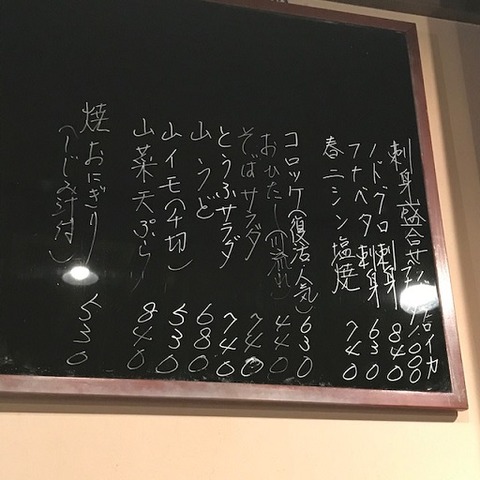 刺身盛合せ 1000
ノドグロ刺身 840
フナベタ刺身 630
春ニシン塩焼 740
コロッケ(復活人気) 630
おひたし 440
そばサラダ 740
とうふサラダ 740
山うど 680
山イモ(千切) 530
山菜天ぷら 840
焼おにぎり
(しじみ汁付) 530